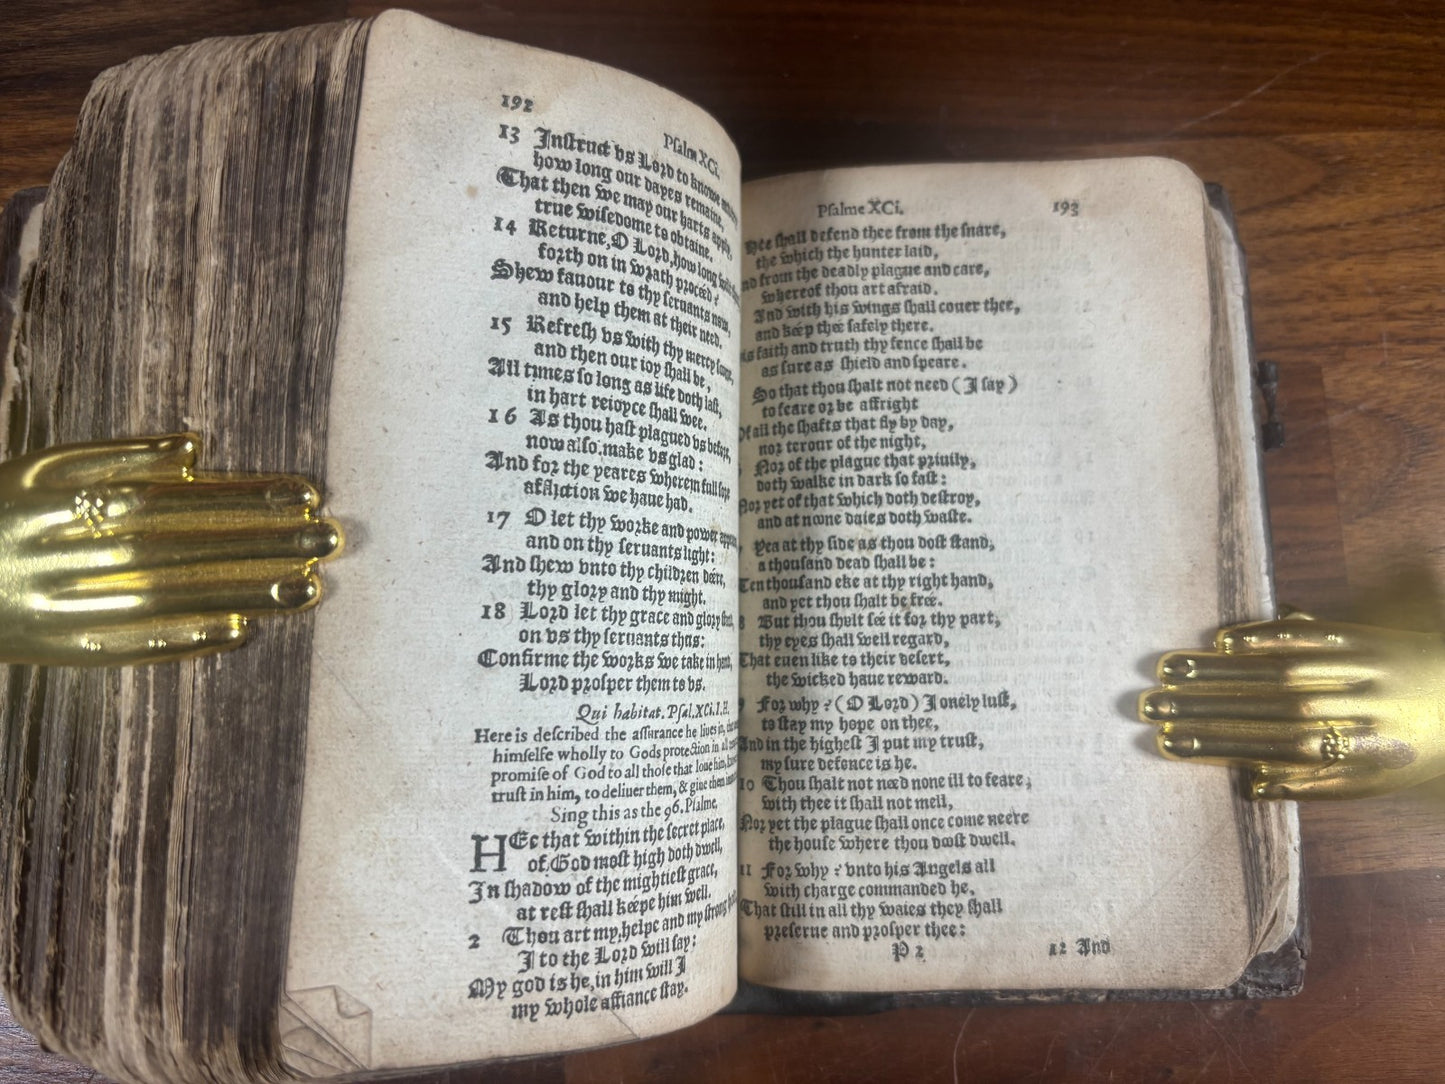 192
Psalm XCi.
13 Instruct vs Lord to knowe
how long our dayes remaine,
That then we may our harts apply,
true wisedome to obtaine.
14 Returne, O Lord, how long
forth on in wrath procéed?
Shew fauour to thy seruants now,
and help them at their need.
15 Refresh vs with thy mercy
and then our ioy shall be,
All times so long as life doth last,
in hart reioyce shall wee.
16 As thou hast plagued vs before,
now also make vs glad:
And for the yeares wherein full
affliction we haue had.
17 O let thy worke and power
and on thy seruants light:
And shew vnto thy children déere,
thy glory and thy might.
18 Lord let thy grace and glory
on vs thy seruants thus:
Confirme the works we take in hand,
Lord prosper them to vs.
Qui habitat. Psal. XCi. I. H.
Here is described the assurance he liues in,
himselfe wholly to Gods protection in all
promise of God to all those that loue him,
trust in him, to deliuer them, & giue them
Sing this as the 96. Psalme.
HEe that within the secret place,
of God most high doth dwell,
In shadow of the mightiest grace,
at rest shall kéepe him well.
2 Thou art my helpe and my strong
I to the Lord will say:
My god is he, in him will I
my whole affiance stay.
Psalme XCi.
193
Hee shall defend thee from the snare,
the which the hunter laid,
and from the deadly plague and care,
whereof thou art afraid.
And with his wings shall couer thee,
and kéep thée safely there.
His faith and truth thy fence shall be
as sure as shield and speare.
So that thou shalt not need (I say)
to feare or be affright
Of all the shafts that fly by day,
nor terour of the night,
Nor of the plague that priuily,
doth walke in dark so fast:
Nor yet of that which doth destroy,
and at noone daies doth waste.
Yea at thy side as thou dost stand,
a thousand dead shall be:
Ten thousand eke at thy right hand,
and yet thou shalt be frée.
8 But thou shalt sée it for thy part,
thy eyes shall well regard,
That euen like to their desert,
the wicked haue reward.
9 For why? (O Lord) I onely lust,
to stay my hope on thee,
And in the highest I put my trust,
my sure defence is he.
10 Thou shalt not néed none ill to feare,
with thee it shall not mell,
Nor yet the plague shall once come neere
the house where thou doost dwell.
11 For why? vnto his Angels all
with charge commanded he,
That still in all thy waies they shall
preserue and prosper thee:
P 2
12 And